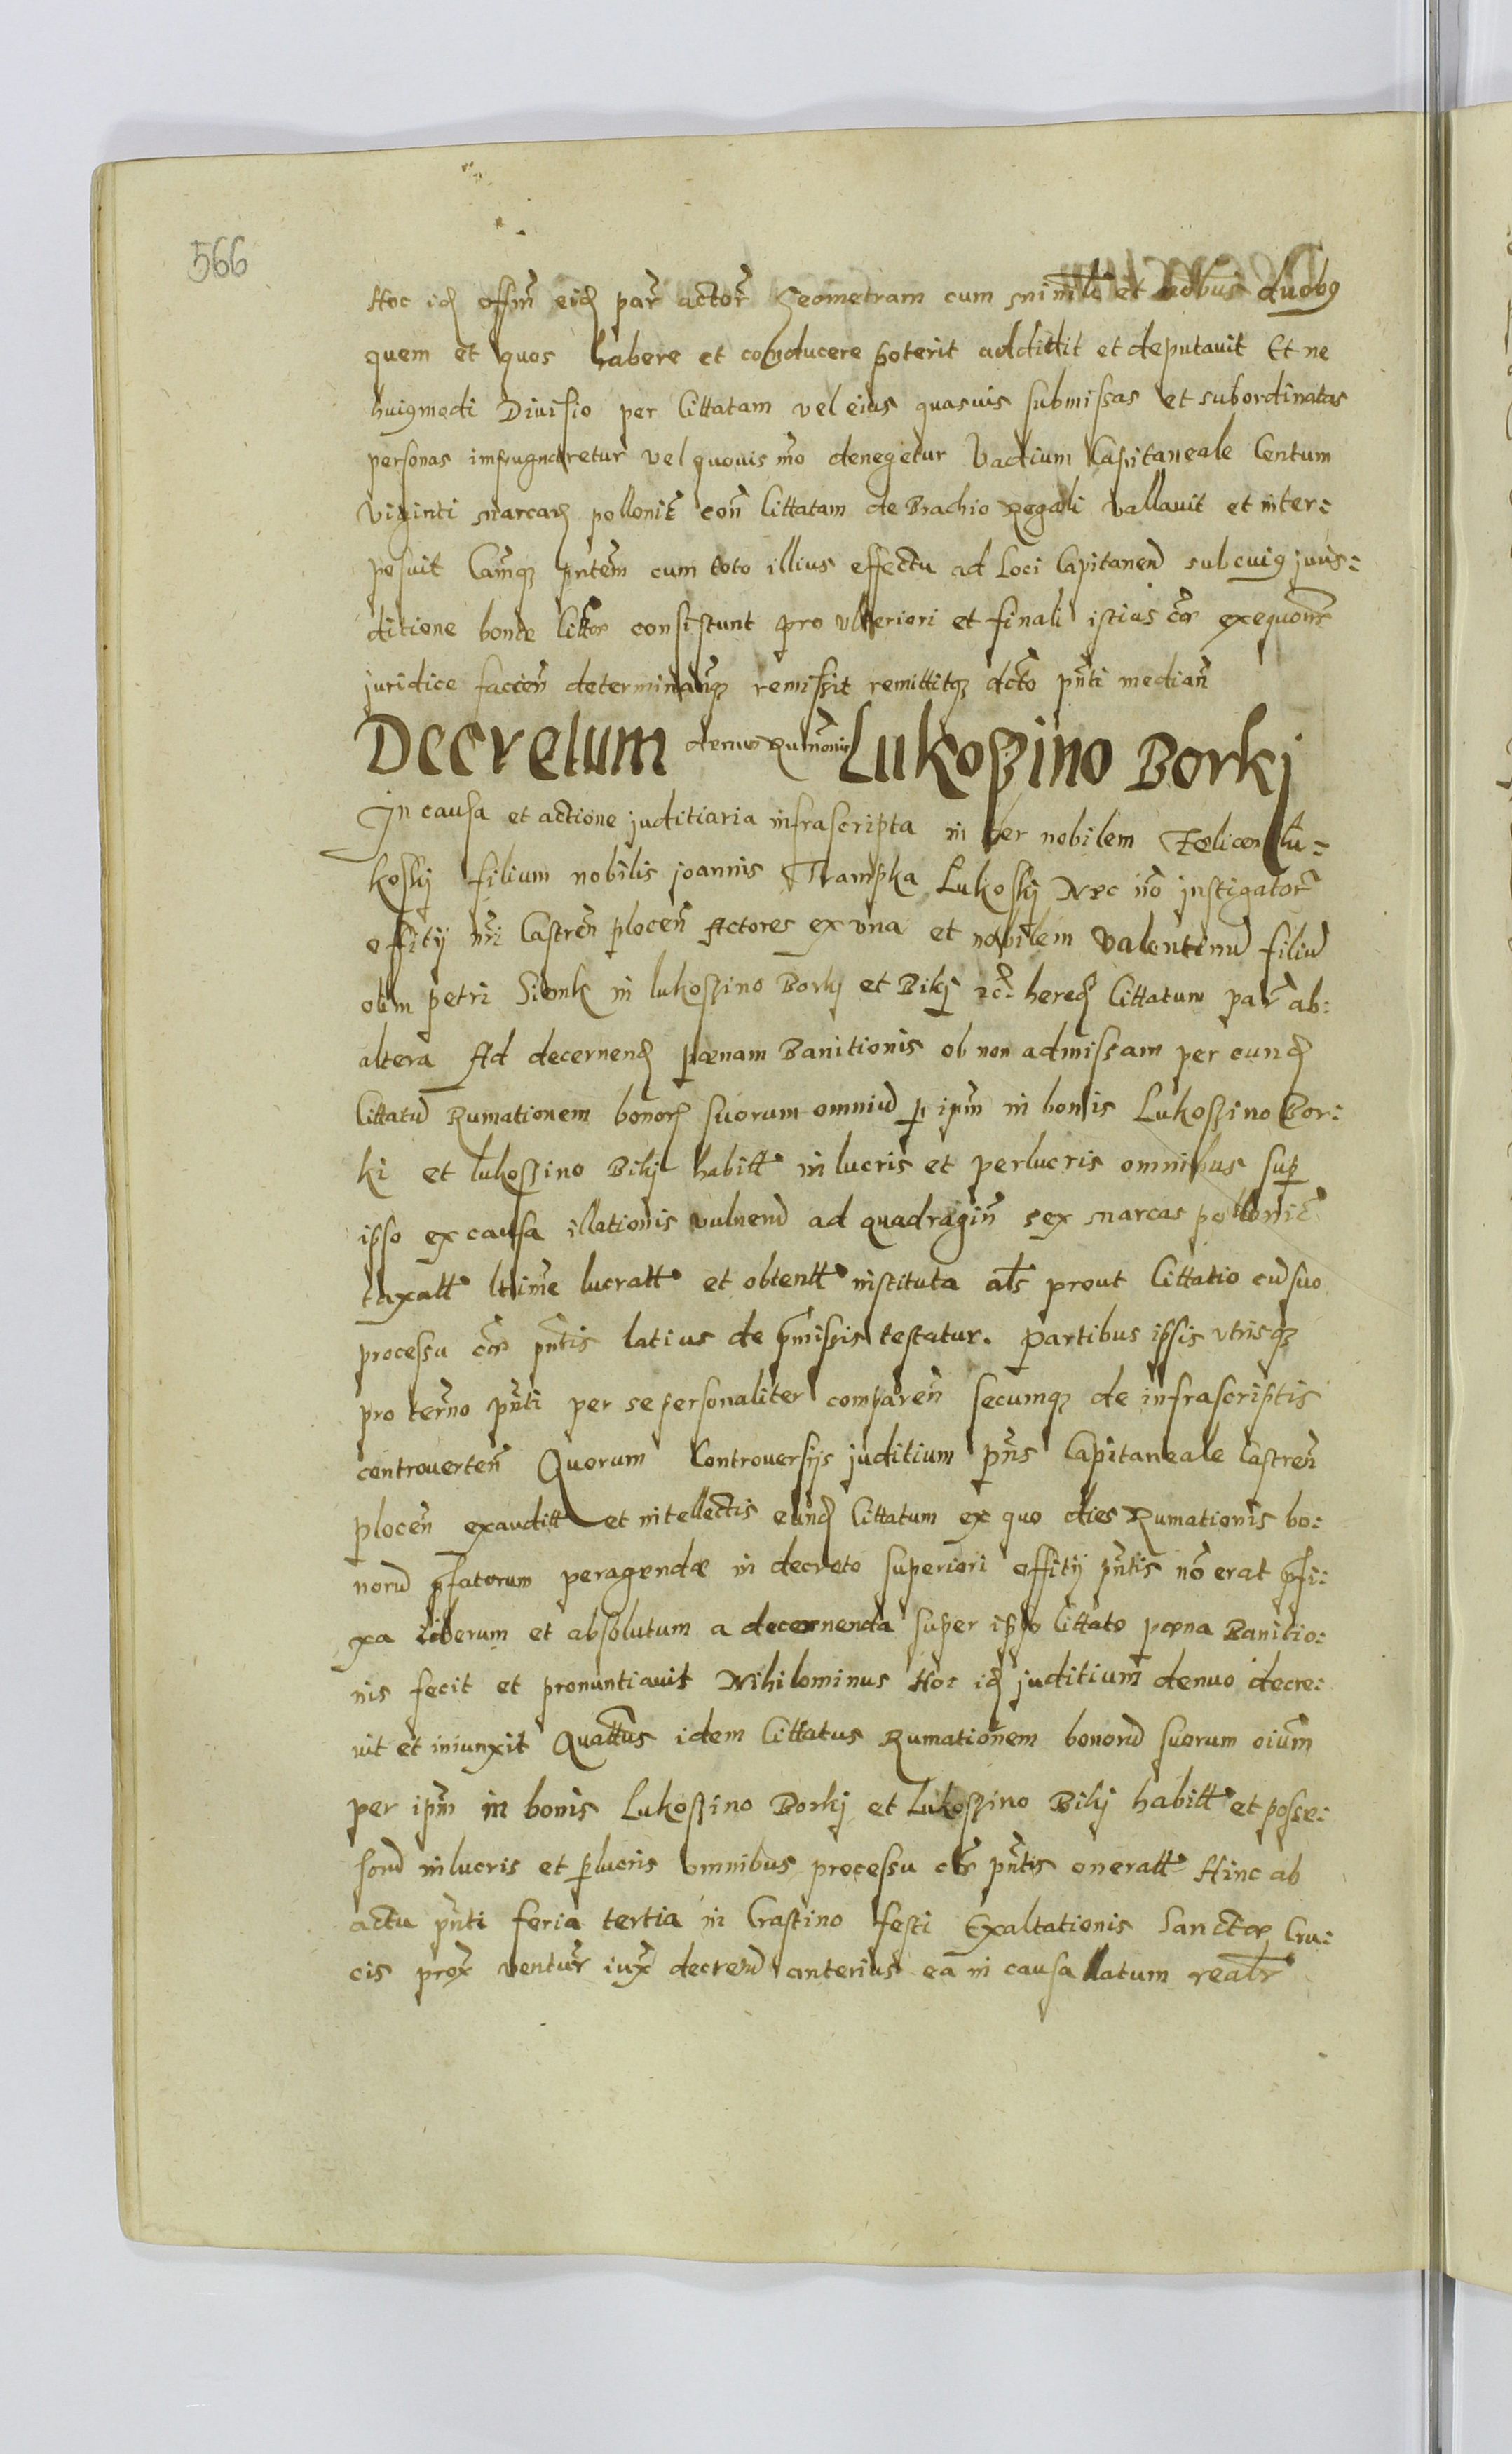 566
Hoc id offm eid par actor Geometram cum minrli et nobus duobus
quem et quos habere et conducere poterit addidit et deputavit Et ne
huiusmodi Divisio per Cittatam vel eius quasvis submissas et subordinatas
personas impugnaretur vel quovis mo denegetur Vadium Capitaneale Centum
Viginti marcar pollonic con Cittatam de Brachio Regali Vallavit et inter:
posuit Camq pntem cum toto illius effectu ad Loci Capitaneu sub cuius juris:
ditione bona Citte consistunt pro Ulteriori et finali istius cae exequone
juridice facien determinanq remissit remittitq dcto pnti median
Decretum denuo Rumonis Lukoszino Borki
In causa et actione juditiaria infrascripta inter nobilem Foelicem Lu:
koskij filium nobilis joannis Trampka Lukoskij Nec no jnstigator
offitij nri Castren plocen Actores ex una et nobilem Valentinu filiu
olim petri Siemk in lukoszino Borkj et Bikj etc hered Cittatum par ab:
altera Ad decernend poenam Banitionis ob non admissam per eund
Cittatu Rumationem bonor suorum omniu p ipm in bonis Lukoszino Bor:
ki et lukoszino Bikj habitt in lucris et perlucris omnibus sup
ipso ex causa illationis vulneru ad quadragin sex marcas pollonic
taxatt ltime lucratt et obtentt instituta als prout Cittatio cu suo
processu cae pntis latius de pmissis testatur. Partibus ipsis utrisq
pro termo pnti per se personaliter comparen secumq de infrascriptis
controverten Quorum Controversijs juditium pns Capitaneale Castren
plocen exauditt et intellectis eund Cittatum ex quo dies Rumationis bo:
noru pfatorum peragendae in decreto superiori offitij pntis no erat pfi:
xa liberum et absolutum a decernenda super ipso Cittato poena Banitio:
nis fecit et pronuntiavit Nihilominus Hoc id juditium denuo decre:
vit et iniunxit Quattus idem Cittatus Rumationem bonoru suorum oium
per ipm in bonis Lukoszino Borkj et Lukoszino Bikj habitt et posse:
soru in lucris et plucris omnibus processu cae pntis oneratt Hinc ab
actu pnti feria tertia in Crastino festi Exaltationis Sanctae Cru:
cis prox ventur iux decretu anterius ea in causa latum realr